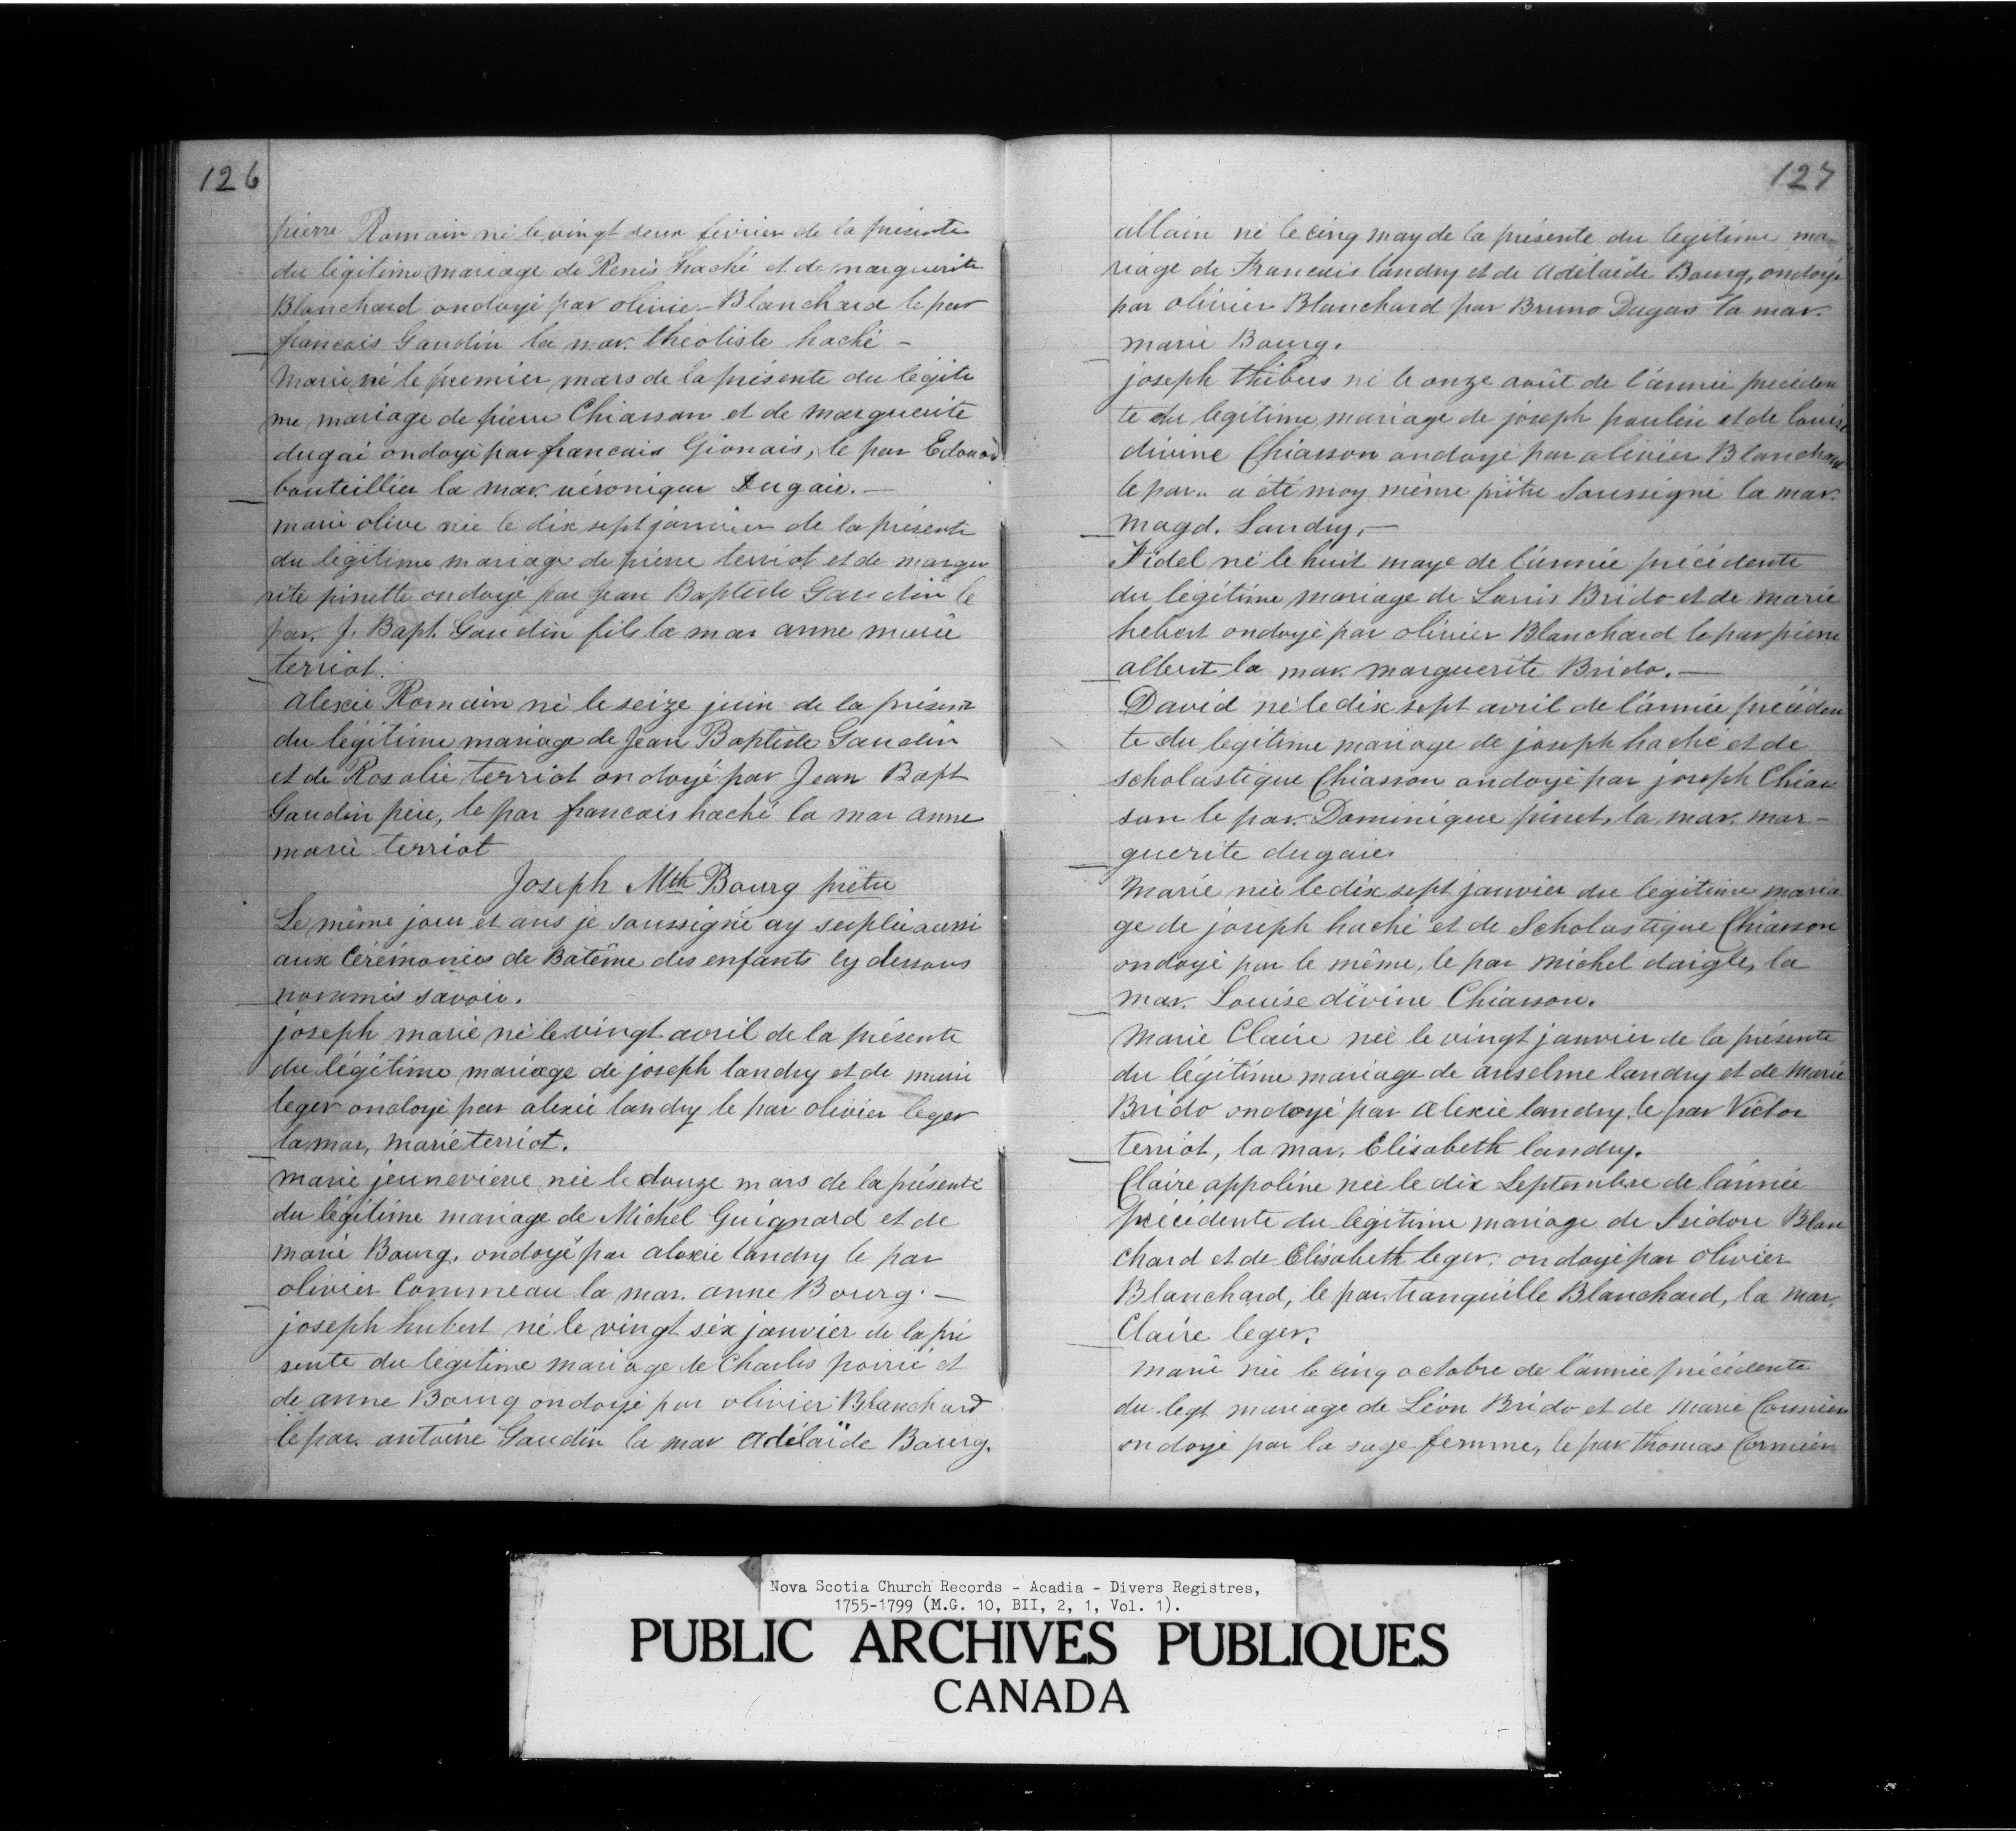 126
pierre Romain né le vingt deux février de la présente
du légitime mariage de Renés haché et de marguerite
Blanchard ondoyé par olivie Blanchard le par
francois Gaudin la mar. théotiste haché -
Marie, né le premier mars de la présente du légiti
me mariage de pierre Chiasson et de marguerite
dugai ondoyé par francais Gionais, le par Edouard
bouteillier la mar. véronique Dugaie. —
marie olive née le dix sept janvier de la présente
du légitime mariage de pierre terriot et de margue
rite pinette ondoyé par jean Baptiste Gaudin le
par. J. Bapt. Gaudin fils la mar anne marie
terriot.
alexie Romain né le seize juin de la présen
du légitime mariage de Jean Baptiste Gaudin
et de Rosalie terriot ondoyé par Jean Bapt
Gaudin père, le par francois haché la mar anne
marie terriot
Joseph Mth Bourg prêtre
Le même jour et ans je soussigné ay supplée aussi
aux Cérémonies de Batême des enfants cy dessous
nommés savoir.
joseph marie né le vingt avril de la présente
du légitime mariage de joseph landry et de marie
leger ondoyé par alexie landry le par olivier leger
la mar, marie terriot.
marie jeuneviève née le douze mars de la présente
du légitime mariage de Michel Guignard et de
marie Bourg. ondoyé par alexie landry le par
olivier Commeau la mar. anne Bourg. —
joseph hubert né le vingt six janvier de la pré
sente du légitime mariage de Charles poirié et
de anne Bourg ondoyé par olivier Blanchard
le par. antoine Gaudin la mar adélaïde Bourg.
127
allain né le cinq may de la présente du legitime ma-
riage de Francais landry et de adélaïde Bourg, ondoyé
par olivier Blanchard par Bruno Dugas la mar.
marie Bourg.
joseph thibus né le onze août de l'année précéden
te du légitime mariage de joseph paulin et de louise
divine Chiasson ondoyé par olivier Blanchard
le par.. a été moy même prêtre Soussigné la mar.
Magd. Landry. —
Fidel né le huit maye de l'année précédente
du légitime mariage de Louis Brido et de marie
hebert ondoyé par olivier Blanchard le par pierre
albert la mar. marguerite Brido. —
David né le dix sept avril de l'année précéden
te du légitime mariage de joseph haché et de
scholastique Chiasson ondoyé par joseph Chias
son le par. Dominique pinet, la mar. mar-
guerite dugaie
Marie née le dix sept janvier du legitime maria
ge de joseph haché et de Scholastique Chiasson
ondoyé par le même, le par michel daigle, la
mar. Louise divine Chiasson.
Marie Claire née le vingt janvier de la présente
du légitime mariage de anselme landry et de Marie
Brido ondoyé par alexie landry, le par Victor
terriot, la mar. Elisabeth landry.
Claire appoline née le dix Septembre de l'année
précédente du légitime mariage de Isidore Blan
chard et de Elisabeth leger. ondoyé par olivier
Blanchard, le par. tranquille Blanchard, la mar.
Claire leger.
marie née le cinq octobre de l'année précédente
du legt mariage de Léon Brido et de Marie Cormier
ondoyé par la sage femme, le par thomas Cormier
Nova Scotia Church Records - Acadia - Divers Registres,
1755-1799 (M.G. 10, BII, 2, 1, Vol. 1).
PUBLIC ARCHIVES PUBLIQUES
CANADA